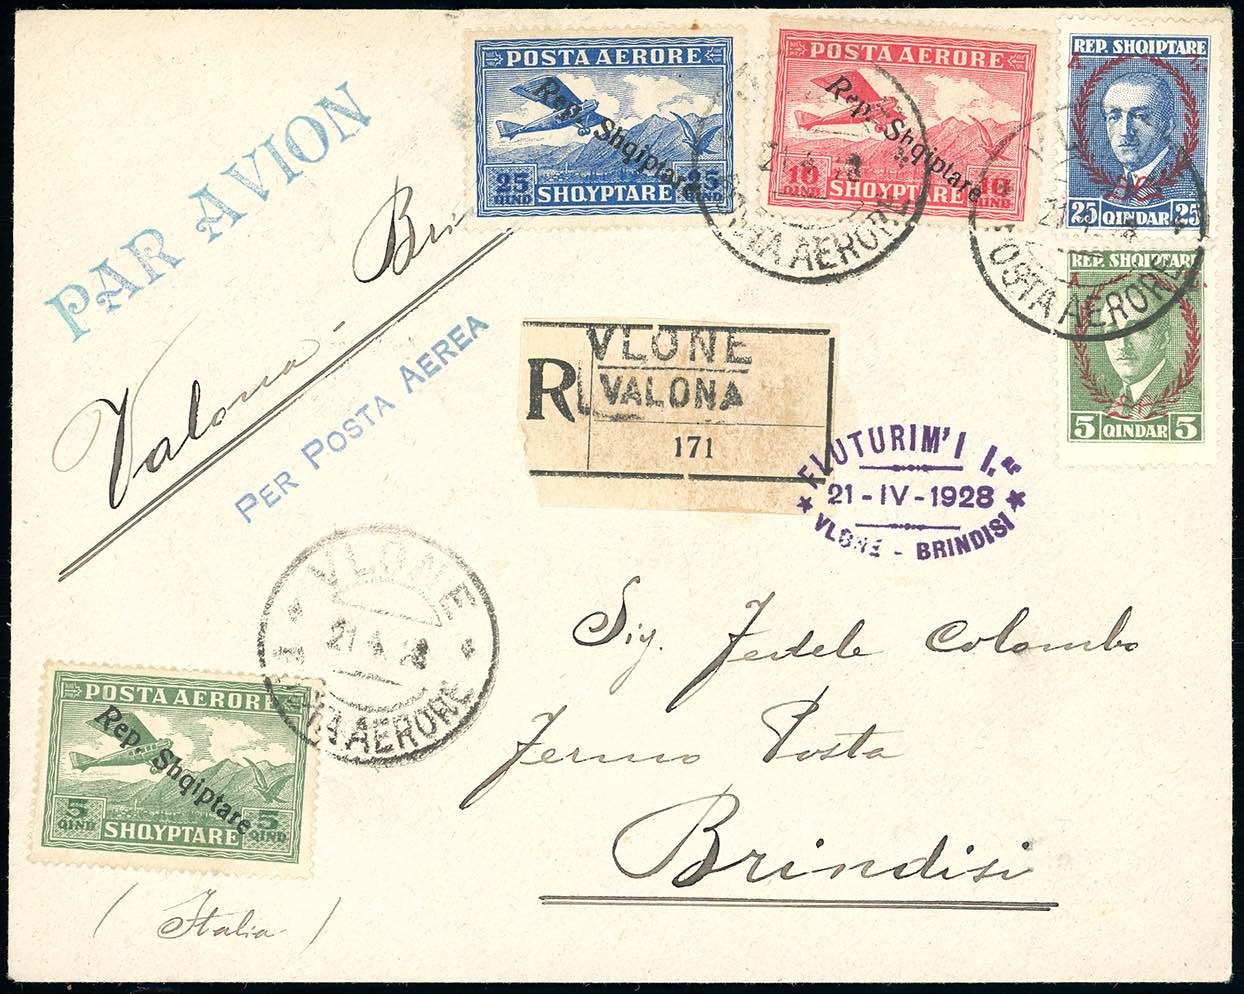 PAR AVION
Valona - Bri
PER POSTA AEREA
POSTA AERORE
Rep. Shqiptare
25 QIND
25 QIND
SHQYPTARE
POSTA AERORE
Rep. Shqiptare
10 QIND
10 QIND
SHQYPTARE
REP. SHQIPTARE
25 QINDAR 25
REP. SHQIPTARE
5 QINDAR 5
POSTA AERORE
POSTA AERORE
R
VLONE
VALONA
171
FLUTURIM' I I.
21-IV-1928
VLONE - BRINDISI
VLONE
21.4.28
POSTA AERORE
Sig. Fedele Colombo
Fermo Posta
Brindisi
POSTA AERORE
Rep. Shqiptare
5 QIND
5 QIND
SHQYPTARE
( Italia )